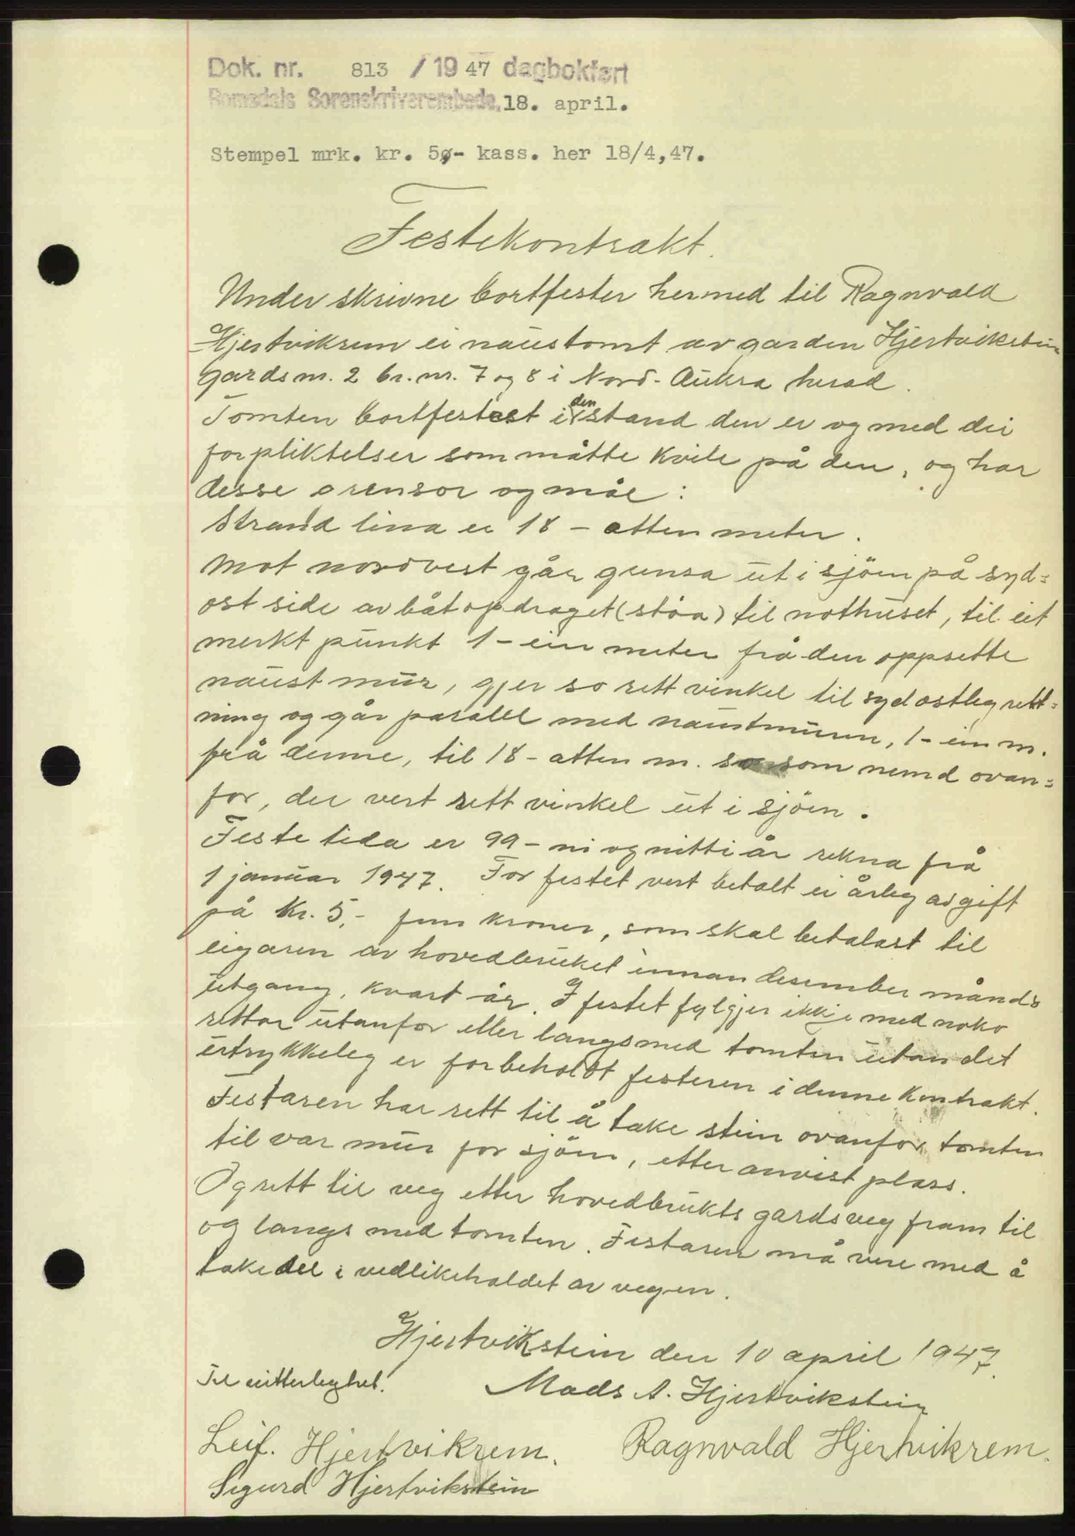 Dok. nr. 813 / 1947 dagbokført
Romsdals Sorenskriverembede, 18. april.
Stempel mrk. kr. 5ø- kass. her 18/4,47.
Festekontrakt.
Underskrivne bortfester hermed til Ragnvald
Hjertvikrem ei naustomt av garden Hjertvikstein
gardsnr. 2 br.nr. 7 og 8 i Nord-Aukra herad.
Tomten bortfestest i den stand den er og med dei
forpliktelser som måtte kvile på den, og har
desse grensor og mål:
Strandlina er 18 - atten meter.
Mot nordvest går grensa ut i sjöen på syd=
ost side av båtopdraget (stöa) til nothuset, til eit
merkt punkt 1 - ein meter frå den oppsette
naustmur, gjer so rett vinkel til sydostleg rett=
ning og går paralel med naustmuren, 1 - ein m.
frå denne, til 18 - atten m. so som nemd ovan=
for, der vert rett vinkel ut i sjöen.
Festetida er 99 - ni og nitti år rekna frå
1 januar 1947. For festet vert betalt ei årleg avgift
på Kr. 5,- fem kroner, som skal betalast til
eigaren av hovedbruket innan desember månds
utgang, kvart år. I festet fylgjer ikkje med noko
rettar utanfor eller langsmed tomten utan det
utrykkeleg er forbeholdt festeren i denne kontrakt.
Festaren har rett til å take stein ovanfor tomten
til var mur for sjöen, etter anvist plass.
Og rett til veg etter hovedbrukts gardsveg fram til
og langs med tomten. Festaren må vere med å
take del i vedlikeholdet av vegen.
Hjertvikstein den 10 april 1947.
Til vitterleghet.
Mads A. Hjertvikstein
Leif. Hjertvikrem.
Ragnvald Hjertvikrem.
Sigurd Hjertvikstein